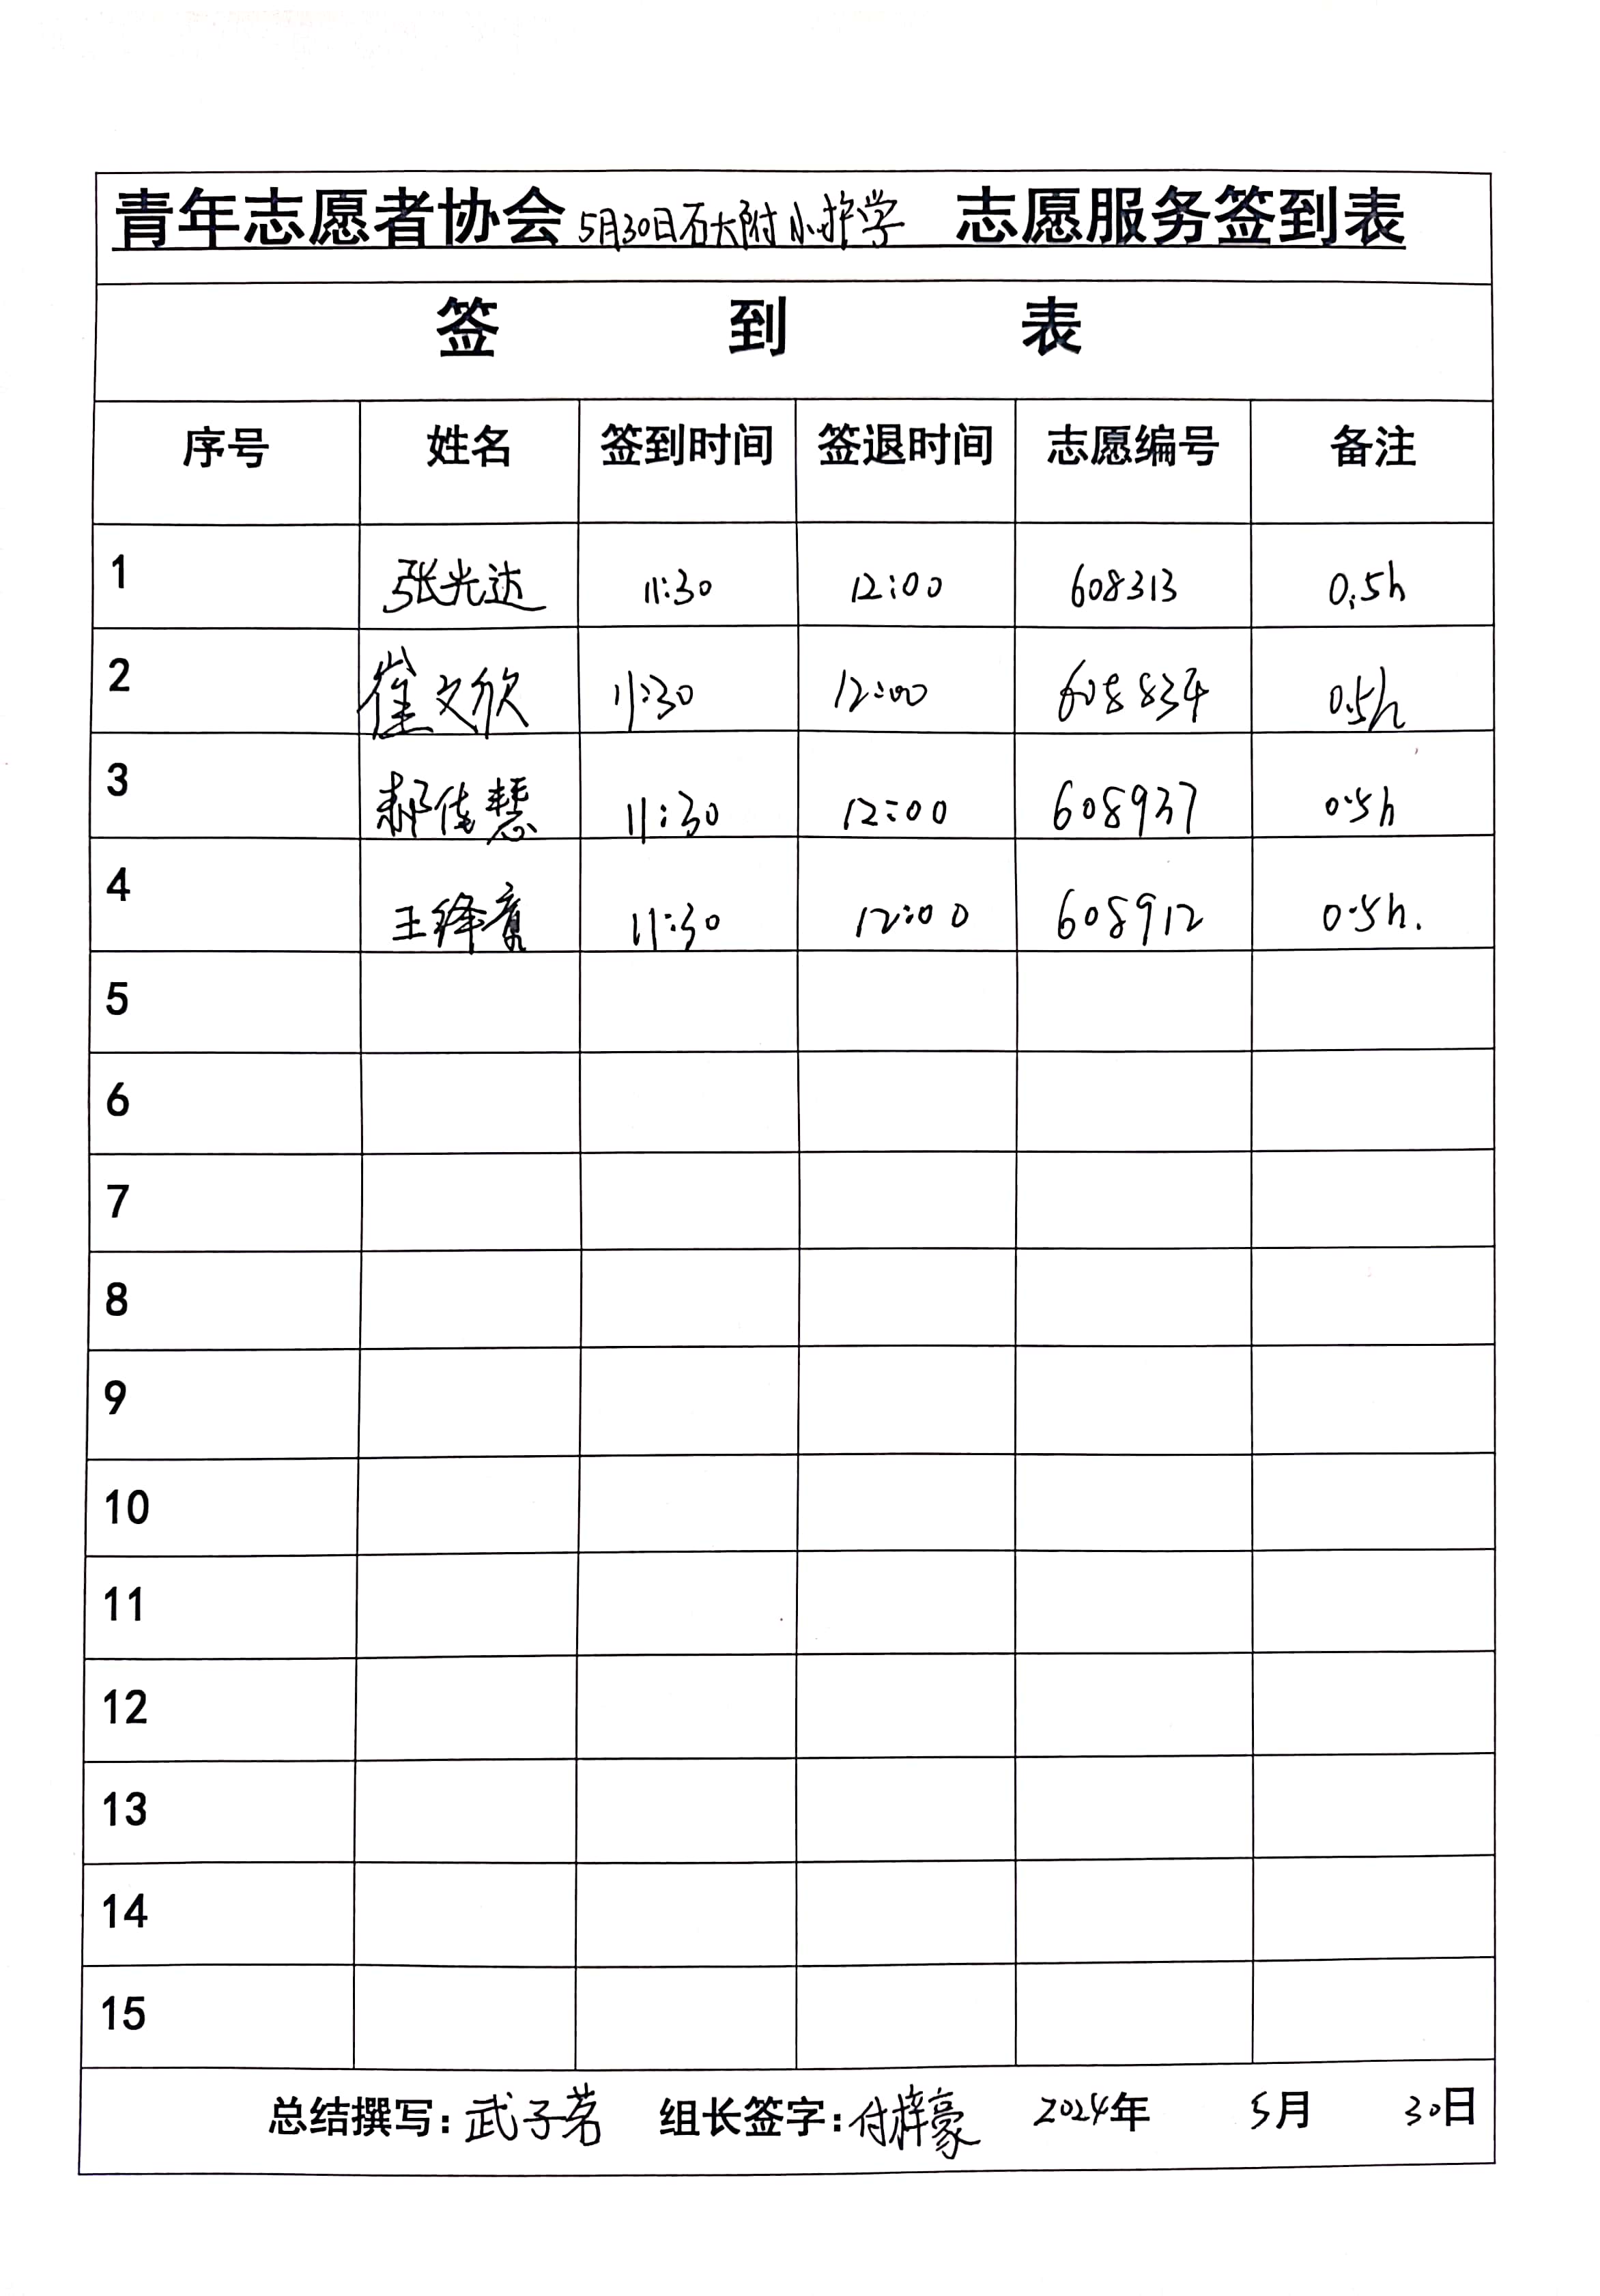 青年志愿者协会5月30日石大附小护学 志愿服务签到表
签 到 表
序号 姓名 签到时间 签退时间 志愿编号 备注
1 张光达 11:30 12:00 608313 0.5h
2 崔文欣 11:30 12:00 608834 0.5h
3 郝佳慧 11:30 12:00 608937 0.5h
4 王绎 11:30 12:00 608912 0.5h.
5
6
7
8
9
10
11
12
13
14
15
总结撰写:武子茗 组长签字:付梓豪 2024年 5月 30日